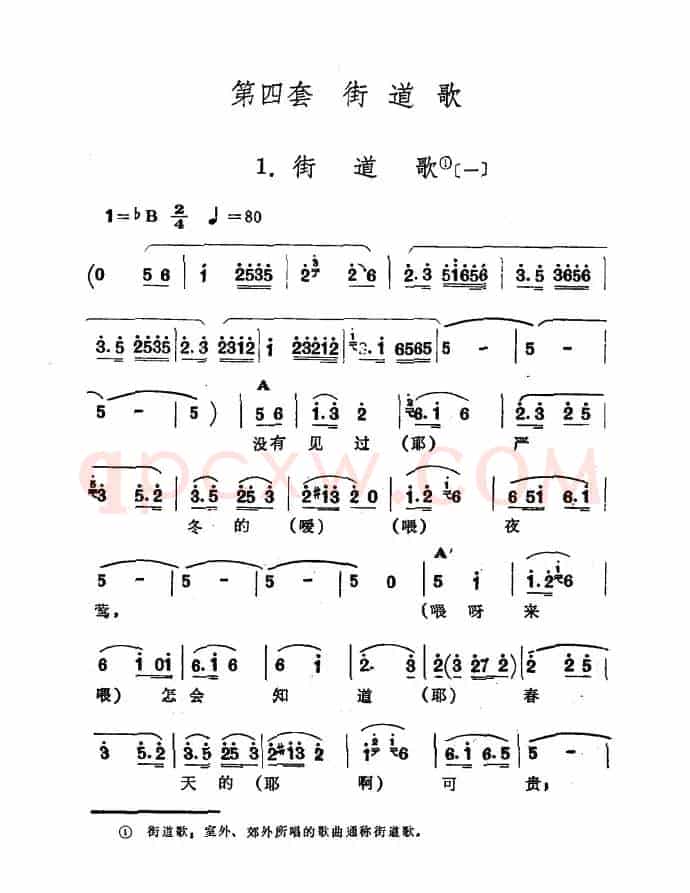 第四套 街道歌
1. 街道歌①〔一〕
1=♭B 2/4 ♩=80
(0 5 6 | i 2535 | 2 3 2 6 | 2. 3 51656 | 3. 5 3656 |
3. 5 2535 | 2. 3 | 2312 | i 23212 | 3. i 6565 | 5 - | 5 - |
A
5 - | 5 ) | 5 6 | i. 3 2 | 6. i 6 | 2. 3 2 5 |
没有 见过 (耶) 严
3 5. 2 | 3. 5 25 3 | 2 #i3 2 0 | i. 2 6 | 6 5i 6. i |
冬的 (嗳) (喂) 夜
A'
5 - | 5 - | 5 - | 5 0 | 5 i | i. 2 6 |
莺, (喂呀来
6 i 0i | 6. i 6 | 6 i | 2. 3 | 2 (3 27 2) | 2 2 5 |
喂) 怎会 知 道 (耶) 春
3 5. 2 | 3. 5 25 3 | 2 #i3 2 | i 6 | 6. i 6. 5 | 5 - |
天的 (耶 啊) 可 贵;
① 街道歌: 室外、郊外所唱的歌曲通称街道歌。
qpcxw.com